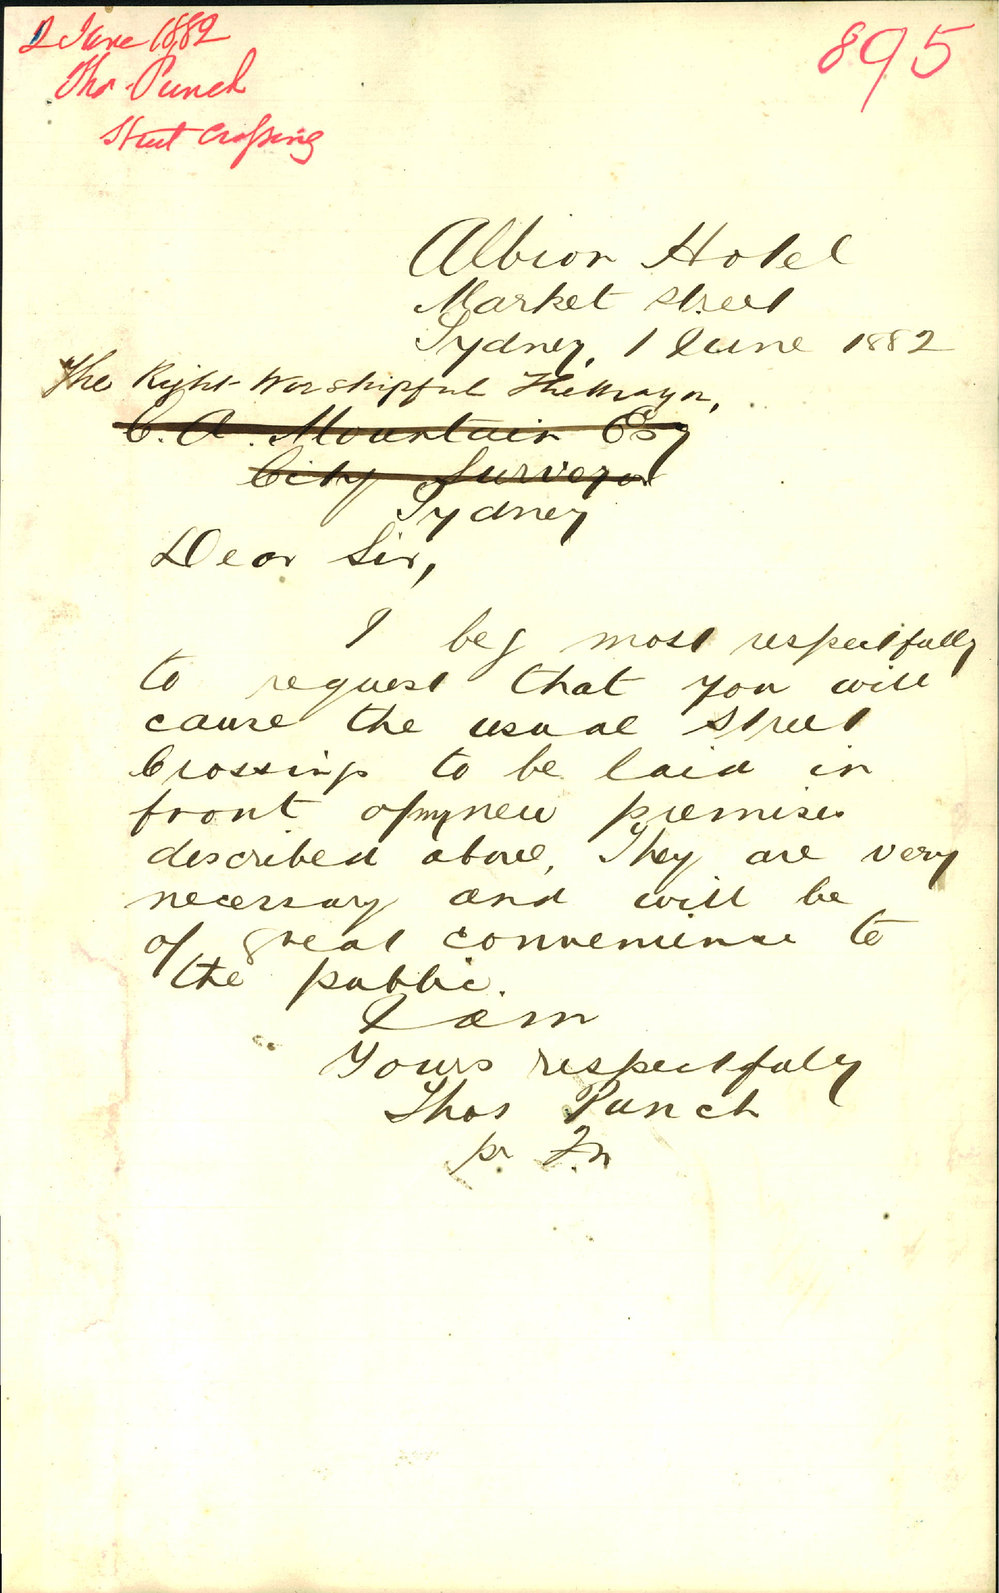 2 June 1882
Thos Punch
Street Crossing
895
Albion Hotel
Market Street
Sydney, 1 June 1882
The Right Worshipful The Mayor,
C. A. Mountain Esq
City Surveyor
Sydney
Dear Sir,
I beg most respectfully
to request that you will
cause the usual Street
Crossings to be laid in
front of my new premises
described above, They are very
necessary and will be
of great convenience to
the public.
I am
Yours respectfuly
Thos Punch
pr.